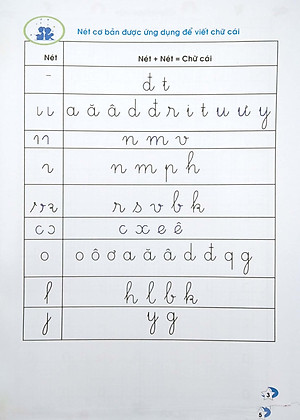 Nét cơ bản được ứng dụng để viết chữ cái
Nét Nét + Nét = Chữ cái
đ t
a ă â d đ r i t u ư y
n m v
n m p h
r s v b k
c x e ê
o o ô ơ a ă â d đ q g
h l b k
y g
3
5